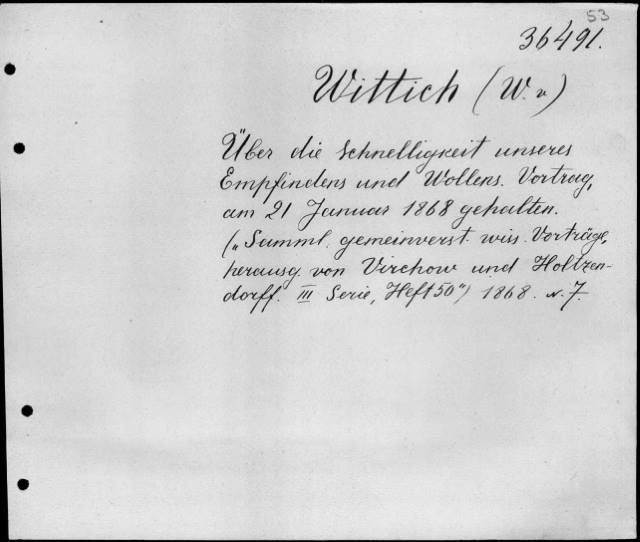 53
36491.
Wittich (W. v)
Über die Schnelligkeit unseres
Empfindens und Wollens. Vortrag,
am 21 Januar 1868 gehalten.
(„Samml. gemeinverst. wiss. Vorträge,
herausg. von Virchow und Holtzen-
dorff. III Serie, Heft 50") 1868. 7.